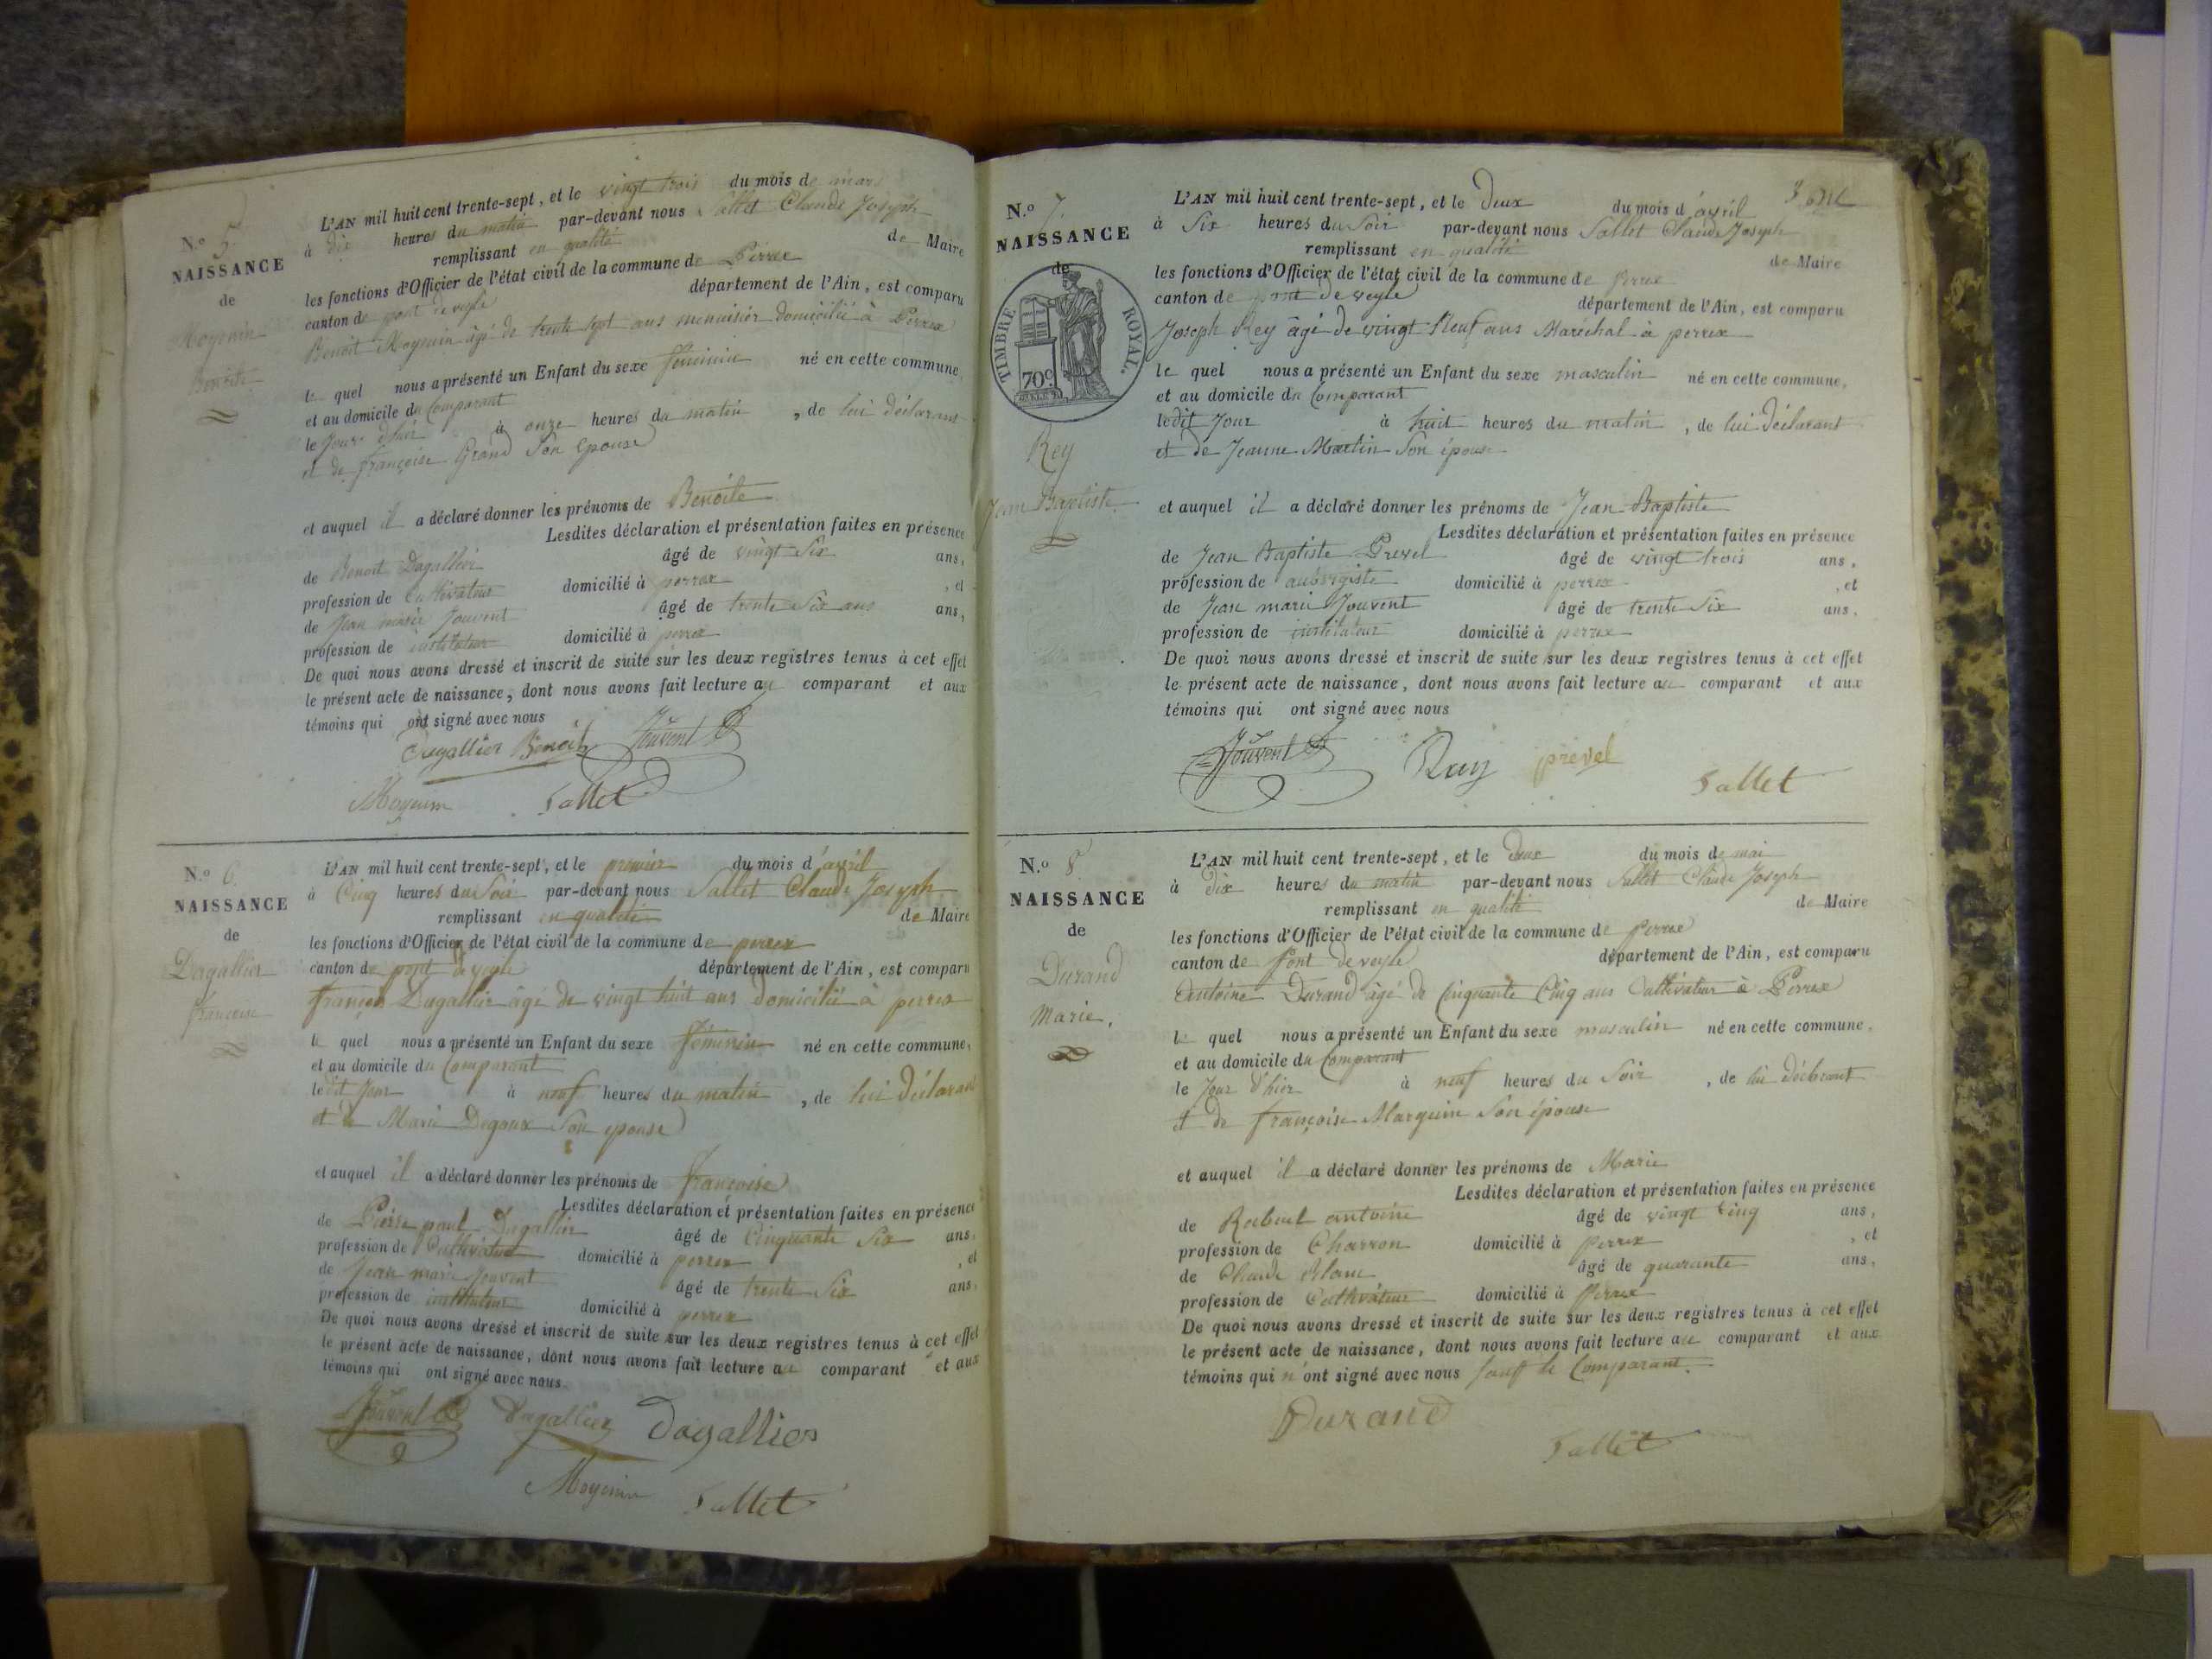 N.o 5.
NAISSANCE
de
Moyenin
Benoite
L'AN mil huit cent trente-sept, et le vingt trois du mois de mars
à dix heures du matin par-devant nous Sallet Claude Joseph
remplissant en qualité de Maire
les fonctions d'Officier de l'état civil de la commune de Perrex
canton de pont de veyle département de l'Ain, est comparu
Benoit Moyenin âgé de trente sept ans menuisier domicilié à Perrex
le quel nous a présenté un Enfant du sexe féminin né en cette commune,
et au domicile du Comparant
le Jour d'hier à onze heures du matin, de lui déclarant
et de françoise Grand Son épouse
et auquel il a déclaré donner les prénoms de Benoite
Lesdites déclaration et présentation faites en présence
de Benoit Dagallier âgé de vingt Six ans,
profession de Cultivateur domicilié à perrex, et
de Jean marie Jouvent âgé de trente Six ans ans,
profession de instituteur domicilié à perrex
De quoi nous avons dressé et inscrit de suite sur les deux registres tenus à cet effet
le présent acte de naissance, dont nous avons fait lecture au comparant et aux
témoins qui ont signé avec nous
Dagallier Benoit Jouvent
Moyenin Sallet
N.o 6.
NAISSANCE
de
Dagallier
francoise
L'AN mil huit cent trente-sept, et le premier du mois d'avril
à Cinq heures du Soir par-devant nous Sallet Claude Joseph
remplissant en qualité de Maire
les fonctions d'Officier de l'état civil de la commune de perrex
canton de pont de veyle département de l'Ain, est comparu
françois Dagallier âgé de vingt huit ans domicilié à perrex
le quel nous a présenté un Enfant du sexe féminin né en cette commune,
et au domicile du Comparant
ledit Jour à neuf heures du matin, de lui déclarant
et de Marie Degoux Son epouse
et auquel il a déclaré donner les prénoms de francoise
Lesdites déclaration et présentation faites en présence
de Pierre paul Dagallier âgé de Cinquante Six ans,
profession de Cultivateur domicilié à perrex, et
de Jean marie Jouvent âgé de trente Six ans,
profession de instituteur domicilié à perrex
De quoi nous avons dressé et inscrit de suite sur les deux registres tenus à cet effet
le présent acte de naissance, dont nous avons fait lecture au comparant et aux
témoins qui ont signé avec nous.
Jouvent Dagallier Dagallier
Moyenin Sallet
N.o 7.
NAISSANCE
de
TIMBRE ROYAL
70c
Rey
Jean Baptiste
3
L'AN mil huit cent trente-sept, et le deux du mois d'avril
à Six heures du Soir par-devant nous Sallet Claude Joseph
remplissant en qualité de Maire
les fonctions d'Officier de l'état civil de la commune de Perrex
canton de pont de veyle département de l'Ain, est comparu
Joseph Rey âgé de vingt Neuf ans Maréchal à perrex
le quel nous a présenté un Enfant du sexe masculin né en cette commune,
et au domicile du Comparant
ledit Jour à huit heures du matin, de lui déclarant
et de Jeanne Martin Son épouse
et auquel il a déclaré donner les prénoms de Jean Baptiste
Lesdites déclaration et présentation faites en présence
de Jean Baptiste Prevel âgé de vingt trois ans,
profession de aubergiste domicilié à perrex, et
de Jean marie Jouvent âgé de trente Six ans,
profession de instituteur domicilié à perrex
De quoi nous avons dressé et inscrit de suite sur les deux registres tenus à cet effet
le présent acte de naissance, dont nous avons fait lecture au comparant et aux
témoins qui ont signé avec nous
Jouvent Rey prevel
Sallet
N.o 8.
NAISSANCE
de
Durand
Marie.
L'AN mil huit cent trente-sept, et le deux du mois de mai
à dix heures du matin par-devant nous Sallet Claude Joseph
remplissant en qualité de Maire
les fonctions d'Officier de l'état civil de la commune de Perrex
canton de Pont de veyle département de l'Ain, est comparu
Antoine Durand âgé de Cinquante Cinq ans Cultivateur à Perrex
le quel nous a présenté un Enfant du sexe masculin né en cette commune,
et au domicile du Comparant
le Jour d'hier à neuf heures du Soir, de lui déclarant
et de françoise Marguin Son épouse
et auquel il a déclaré donner les prénoms de Marie
Lesdites déclaration et présentation faites en présence
de antoine âgé de vingt Cinq ans,
profession de Charron domicilié à perrex, et
de Claude Blanc âgé de quarante ans,
profession de Cultivateur domicilié à perrex
De quoi nous avons dressé et inscrit de suite sur les deux registres tenus à cet effet
le présent acte de naissance, dont nous avons fait lecture au comparant et aux
témoins qui n'ont signé avec nous sauf le Comparant.
Durand
Sallet